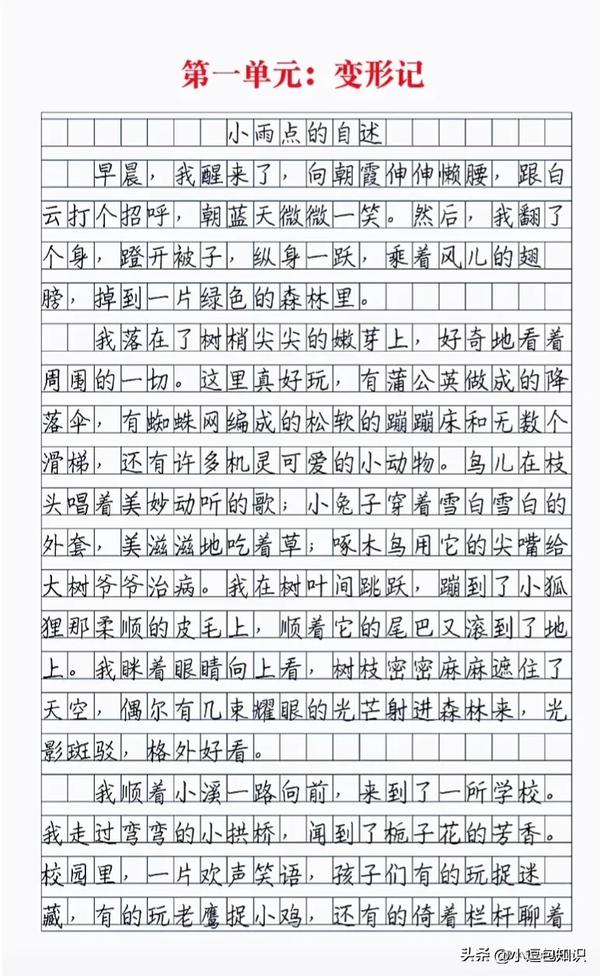 第一单元：变形记
小雨点的自述
早晨，我醒来了，向朝霞伸伸懒腰，跟白
云打个招呼，朝蓝天微微一笑。然后，我翻了
个身，蹬开被子，纵身一跃，乘着风儿的翅
膀，掉到一片绿色的森林里。
我落在了树梢尖尖的嫩芽上，好奇地看着
周围的一切。这里真好玩，有蒲公英做成的降
落伞，有蜘蛛网编成的松软的蹦蹦床和无数个
滑梯，还有许多机灵可爱的小动物。鸟儿在枝
头唱着美妙动听的歌；小兔子穿着雪白雪白的
外套，美滋滋地吃着草；啄木鸟用它的尖嘴给
大树爷爷治病。我在树叶间跳跃，蹦到了小狐
狸那柔顺的皮毛上，顺着它的尾巴又滚到了地
上。我眯着眼睛向上看，树枝密密麻麻遮住了
天空，偶尔有几束耀眼的光芒射进森林来，光
影斑驳，格外好看。
我顺着小溪一路向前，来到了一所学校。
我走过弯弯的小拱桥，闻到了栀子花的芳香。
校园里，一片欢声笑语，孩子们有的玩捉迷
藏，有的玩老鹰捉小鸡，还有的倚着栏杆聊着
头条 @小逗包知识